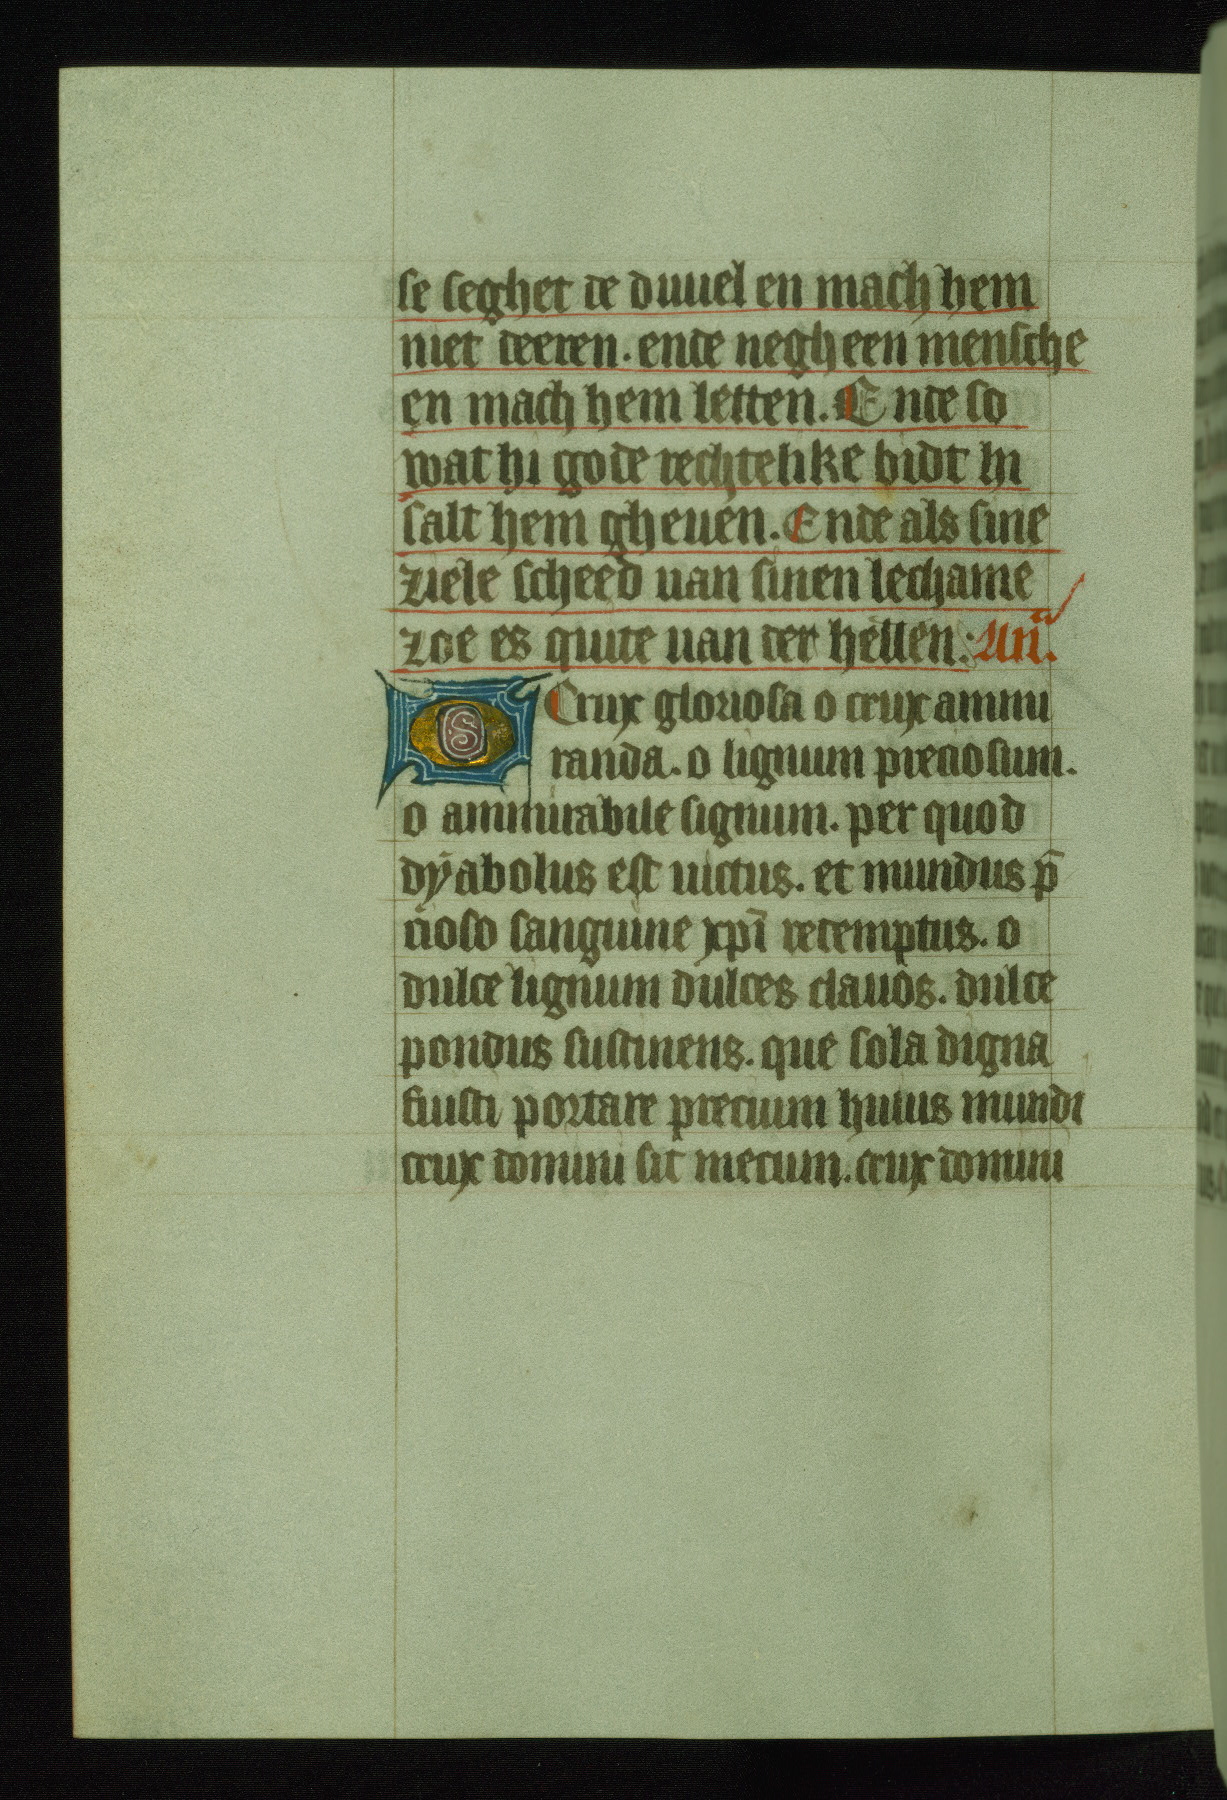 se seghet de duuel en mach hem
niet deeren. ende negheen mensche
en mach hem letten. Ende so
wat hi gode rechtelike bidt hi
salt hem gheuen. Ende als sine
ziele scheed uan sinen lechame
zoe es quite uan der hellen. Anã.
O Crux gloriosa o crux ammi
randa. o lignum preciosum.
o ammirabile signum. per quod
dyabolus est uictus. et mundus p̄
cioso sanguine xpī redemptus. o
dulce lignum dulces clauos. dulce
pondus sustinens. que sola digna
fuisti portare precium huius mundi
crux domini sit mecum. crux domini